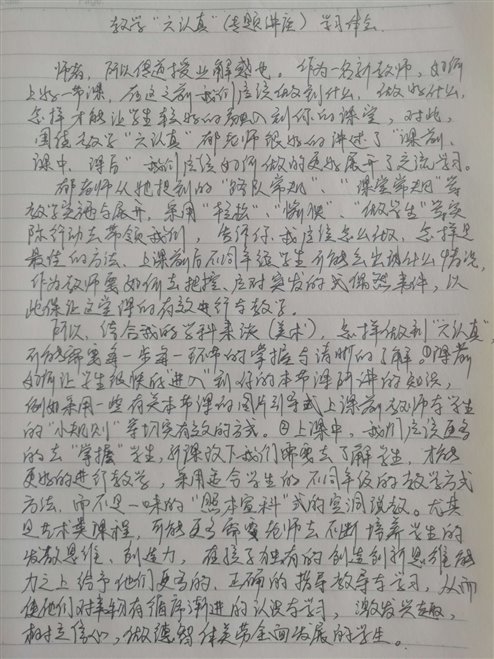 教学“六认真”(专题讲座)学习体会
师者,所以传道授业解惑也。作为一名新教师,如何
上好一节课,在这之前我们应该做到什么,做好什么,
怎样才能让学生较好的融入到你的课堂,对此,
围绕教学“六认真”郁老师很好的讲述了“课前、
课中、课后”我们应该如何做的更好展开了交流学习。
郁老师从她提到的“路队常规”、“课堂常规”等
教学实施与展开,采用“轻松”、“愉悦”、“做学生”等实
际行动去带领我们,告诉你、我应该怎么做、怎样是
最佳的方法、上课前后不同年级学生可能会出现什么情况,
作为教师要如何去把握、应对突发的或偶然事件,以
此保证这堂课的有效进行与教学。
所以,结合我的学科来谈(美术),怎样做到“六认真”,
可能需要每一步每一环节的掌握与清晰的了解。①课前
如何让学生很快的“进入”到你的本节课所讲的知识,
例如采用一些有关本节课的图片引导式上课前教师与学生
的“小规则”等切实有效的方式。②上课中,我们应该更多
的去“掌握”学生,所谓放下我们需要去了解学生,才能
更好的进行教学,采用适合学生的不同年级的教学方式
方法,而不是一味的“照本宣科”式的空洞说教。尤其
是艺术类课程,可能更多需要老师去不断培养学生的
发散思维、创造力,在孩子独有的创造创新思维能
力之上给予他们更多的、正确的指导教导与学习,从而
使他们对美术有循序渐进的认识与学习,激发兴趣,
树立信心,做德智体美劳全面发展的学生。